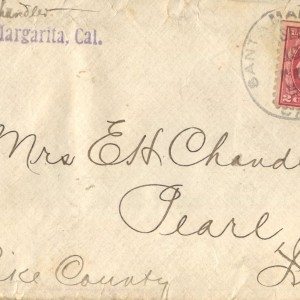 Chandler
Margarita, Cal.
SANTA MAR
Mrs EH. Chandl
Pearl
Pike County